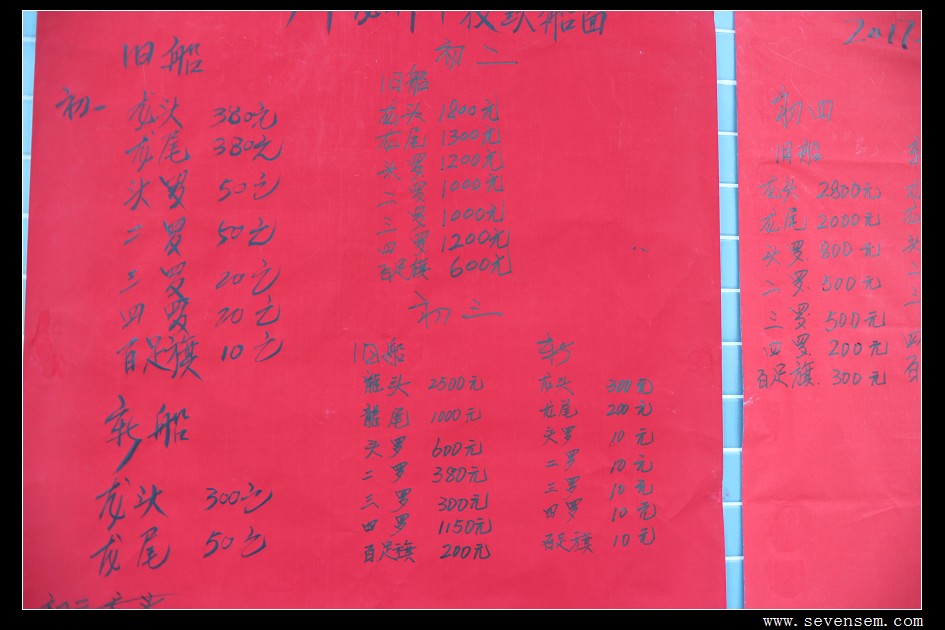 旧船
初一 龙头 380元
龙尾 380元
头罗 50元
二罗 50元
三罗 20元
四罗 20元
百足旗 10元
新船
龙头 300元
龙尾 50元
初二
旧船
龙头 1800元
龙尾 1300元
头罗 1200元
二罗 1000元
三罗 1000元
四罗 1200元
百足旗 600元
初三
旧船
龍头 2500元
龍尾 1000元
头罗 600元
二罗 380元
三罗 300元
四罗 1150元
百足旗 200元
新
龙头 300元
龙尾 200元
头罗 10元
二罗 10元
三罗 10元
四罗 10元
百足旗 10元
初四
旧船
龙头 2800元
龙尾 2000元
头罗 800元
二罗 500元
三罗 500元
四罗 200元
百足旗 300元
www.sevensem.com